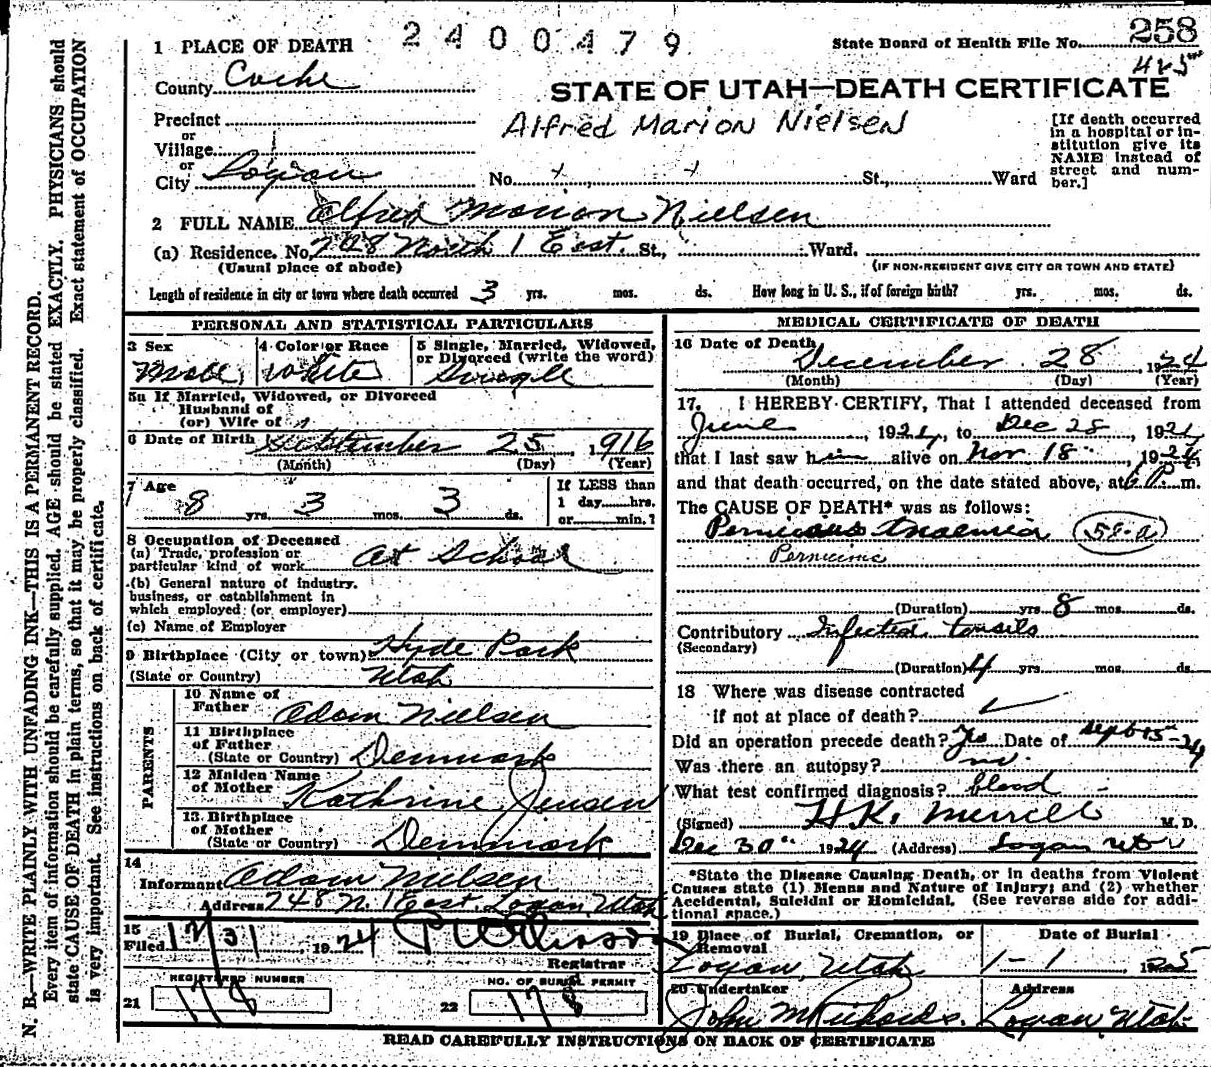 N. B.—WRITE PLAINLY WITH UNFADING INK—THIS IS A PERMANENT RECORD.
Every item of information should be carefully supplied. AGE should be stated EXACTLY. PHYSICIANS should
state CAUSE OF DEATH in plain terms, so that it may be properly classified. Exact statement of OCCUPATION
is very important. See instructions on back of certificate.
2400479
State Board of Health File No. 258
425
1 PLACE OF DEATH
County Cache
STATE OF UTAH—DEATH CERTIFICATE
Alfred Marion Nielsen
Precinct
or
Village
or
City Logan No. St., Ward
[If death occurred
in a hospital or in-
stitution give its
NAME instead of
street and num-
ber.]
2 FULL NAME Alfred Marion Nielsen
(a) Residence. No. 748 North 1 East St., Ward.
(Usual place of abode) (IF NON-RESIDENT GIVE CITY OR TOWN AND STATE)
Length of residence in city or town where death occurred 3 yrs. mos. ds. How long in U. S., if of foreign birth? yrs. mos. ds.
PERSONAL AND STATISTICAL PARTICULARS
3 Sex
Male
4 Color or Race
White
5 Single, Married, Widowed,
or Divorced (write the word)
Single
5a If Married, Widowed, or Divorced
Husband of
(or) Wife of
6 Date of Birth September 25, 1916
(Month) (Day) (Year)
7 Age
8 yrs. 3 mos. 3 ds.
If LESS than
1 day hrs.
or min.?
8 Occupation of Deceased
(a) Trade, profession or
particular kind of work At School
(b) General nature of industry.
business, or establishment in
which employed (or employer)
(c) Name of Employer
9 Birthplace (City or town) Hyde Park
(State or Country) Utah
PARENTS
10 Name of
Father Adam Nielsen
11 Birthplace
of Father
(State or Country) Denmark
12 Maiden Name
of Mother Kathrine Jensen
13 Birthplace
of Mother
(State or Country) Denmark
14
Informant Adam Nielsen
Address 748 N. 1 East Logan, Utah
15
Filed 12/31 1924
Registrar
REGISTERED NUMBER
21 178
NO. OF BURIAL PERMIT
22 178
MEDICAL CERTIFICATE OF DEATH
16 Date of Death
December 28 1924
(Month) (Day) (Year)
17. I HEREBY CERTIFY, That I attended deceased from
June, 1924, to Dec 28, 1924
that I last saw him alive on Nov 18, 1924,
and that death occurred, on the date stated above, at 6 P. m.
The CAUSE OF DEATH* was as follows:
Pernicious Anaemia 58-a
Pernicious
(Duration) yrs 8 mos. ds.
Contributory Infected tonsils
(Secondary)
(Duration) 4 yrs mos. ds.
18 Where was disease contracted
if not at place of death?
Did an operation precede death? Yes Date of Sept 15-24
Was there an autopsy? no.
What test confirmed diagnosis? blood
(Signed) H.K. Merrill M. D.
Dec 30 1924 (Address) Logan Utah
*State the Disease Causing Death, or in deaths from Violent
Causes state (1) Means and Nature of Injury; and (2) whether
Accidental, Suicidal or Homicidal. (See reverse side for addi-
tional space.)
19 Place of Burial, Cremation, or
Removal
Logan, Utah
Date of Burial
1-1 1925
20 Undertaker
John M Richards.
Address
Logan, Utah
READ CAREFULLY INSTRUCTIONS ON BACK OF CERTIFICATE